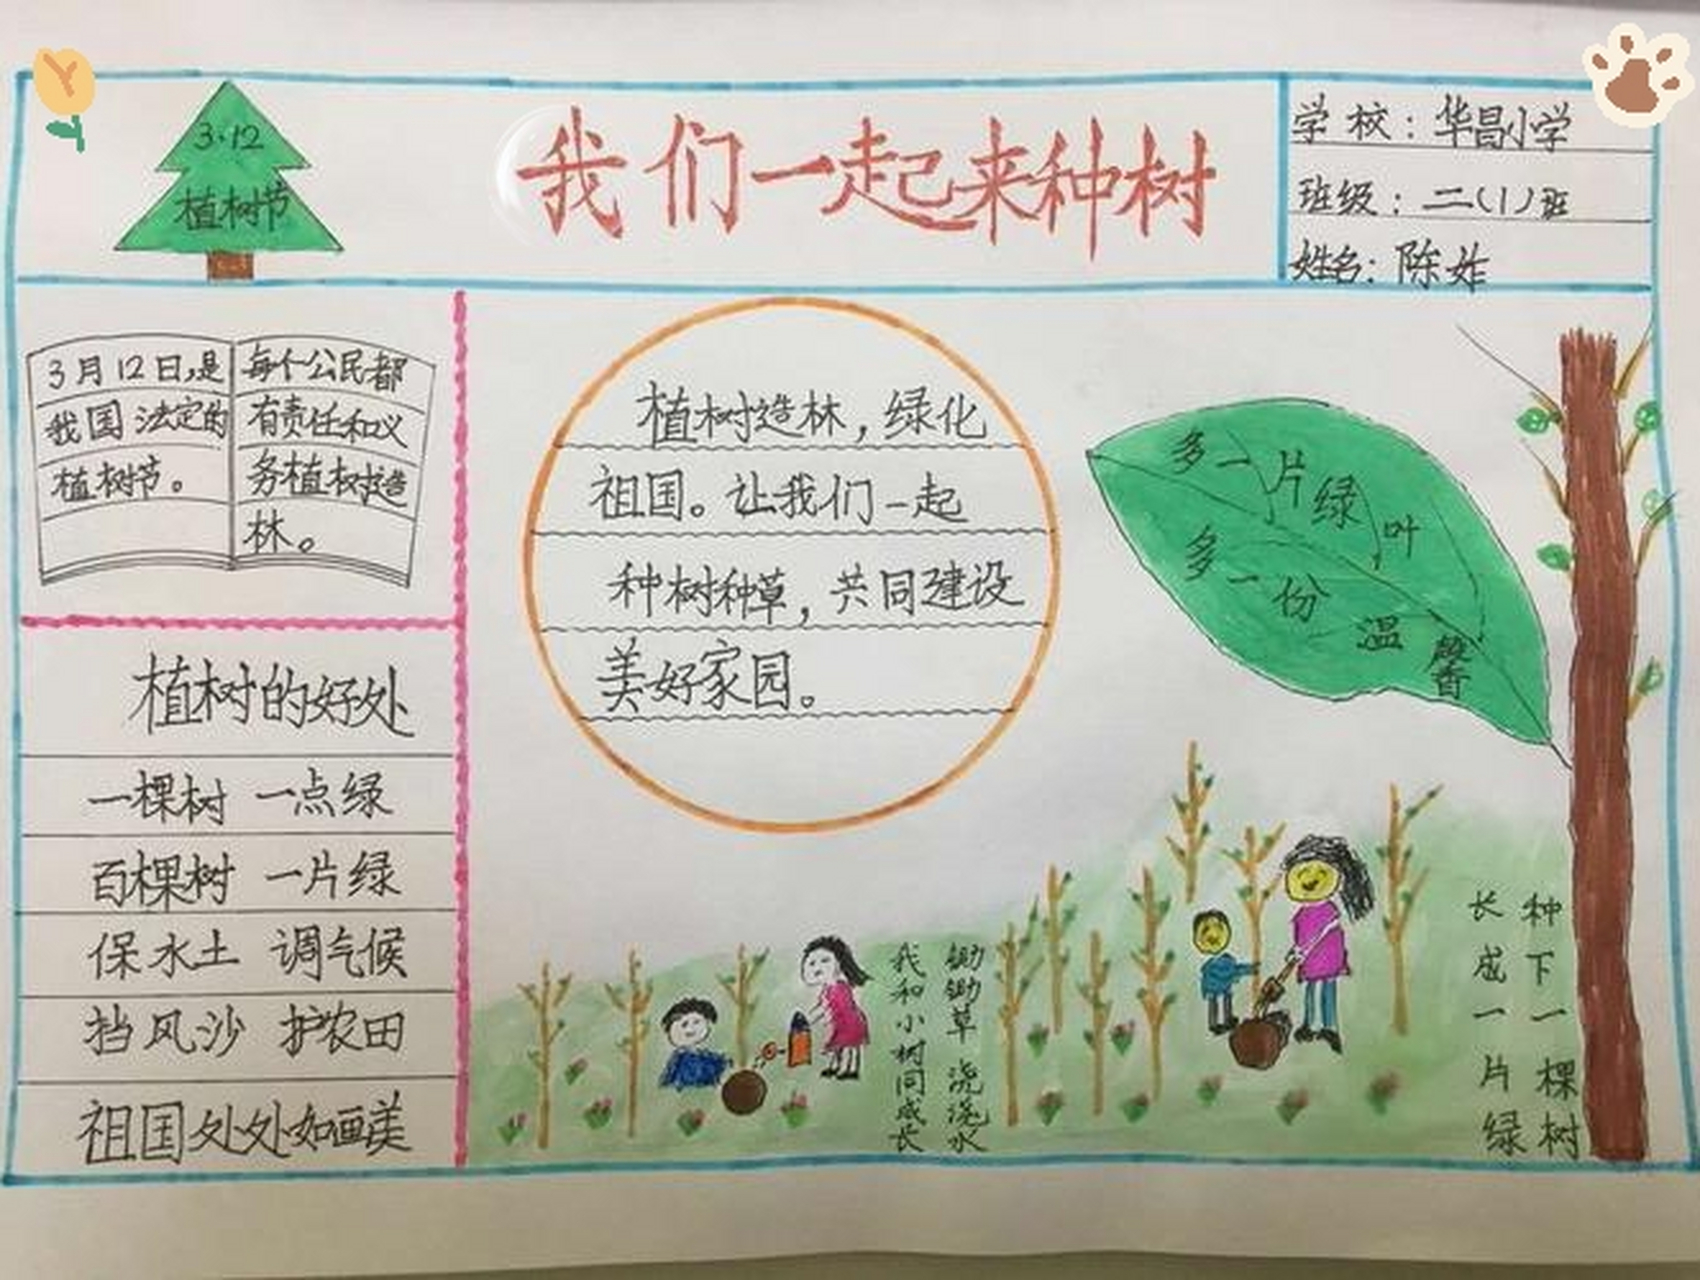 3·12
植树节
我们一起来种树
学校：华昌小学
班级：二(1)班
姓名：陈炸
3月12日,是
我国法定的
植树节。
每个公民都
有责任和义
务植树造
林。
植树造林，绿化
祖国。让我们一起
种树种草，共同建设
美好家园。
多一片绿叶
多一份温馨
植树的好处
一棵树 一点绿
百棵树 一片绿
保水土 调气候
挡风沙 护农田
祖国处处如画美
锄锄草 浇浇水
我和小树同成长
种下一棵树
长成一片绿